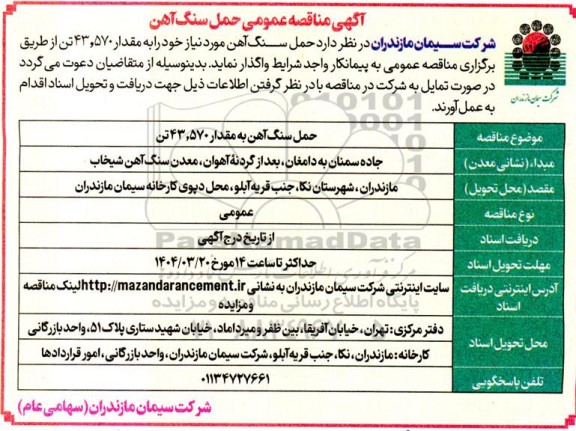 آگهی مناقصه عمومی حمل سنگ آهن
شرکت سیمان مازندران در نظر دارد حمل سنگ آهن مورد نیاز خود را به مقدار ۴۳,۵۷۰ تن از طریق
برگزاری مناقصه عمومی به پیمانکار واجد شرایط واگذار نماید. بدینوسیله از متقاضیان دعوت می گردد
در صورت تمایل به شرکت در مناقصه با در نظر گرفتن اطلاعات ذیل جهت دریافت و تحویل اسناد اقدام
به عمل آورند.
شرکت سیمان مازندران
موضوع مناقصه حمل سنگ آهن به مقدار ۴۳,۵۷۰ تن
مبداء (نشانی معدن) جاده سمنان به دامغان، بعد از گردنهٔ آهوان، معدن سنگ آهن شیخاب
مقصد (محل تحویل) مازندران، شهرستان نکا، جنب قریه آبلو، محل دپوی کارخانه سیمان مازندران
نوع مناقصه عمومی
دریافت اسناد از تاریخ درج آگهی
مهلت تحویل اسناد حداکثر تا ساعت ۱۴ مورخ ۱۴۰۴/۰۳/۲۰
آدرس اینترنتی دریافت سایت اینترنتی شرکت سیمان مازندران به نشانی http://mazandarancement.ir لینک مناقصه
اسناد و مزایده
محل تحویل اسناد دفتر مرکزی: تهران، خیابان آفریقا، بین ظفر و میرداماد، خیابان شهید ستاری پلاک ۵۱، واحد بازرگانی
کارخانه: مازندران، نکا، جنب قریه آبلو، شرکت سیمان مازندران، واحد بازرگانی، امور قراردادها
تلفن پاسخگویی ۰۱۱۳۴۷۲۷۶۶۱
شرکت سیمان مازندران (سهامی عام)
ParsNamadData
پایگاه اطلاع رسانی مناقصه و مزایده